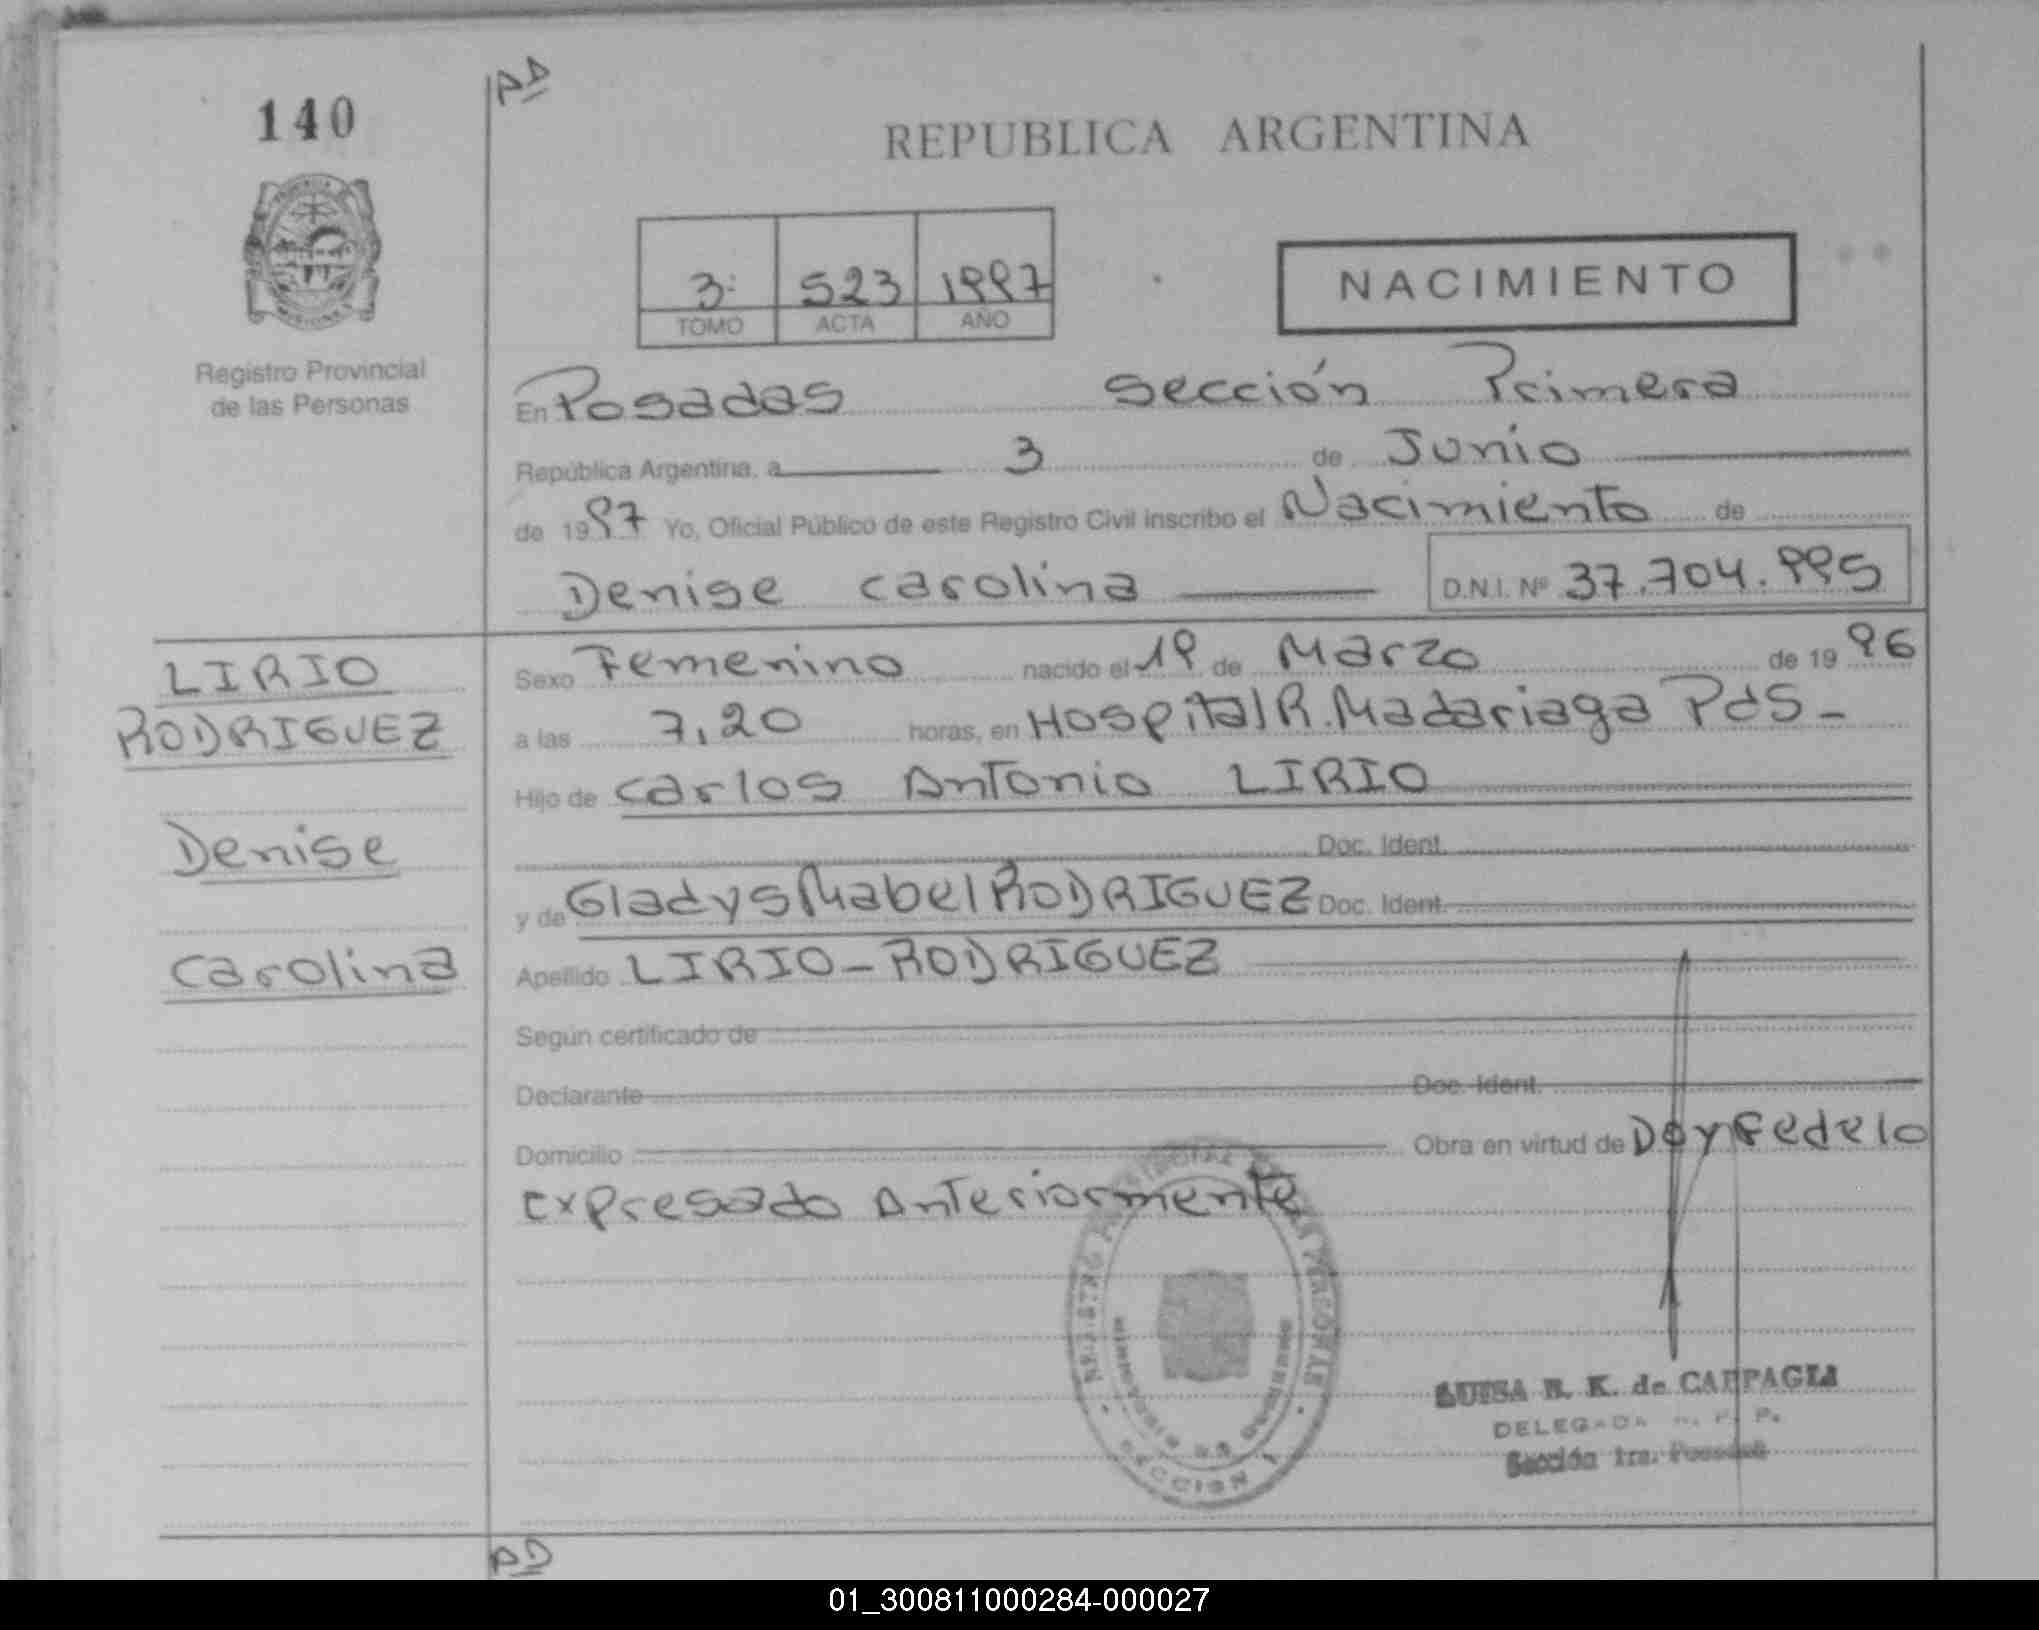 AD
140
REPUBLICA ARGENTINA
3: 523 1997
TOMO ACTA AÑO
NACIMIENTO
Registro Provincial
de las Personas
En Posadas Sección Primera
República Argentina, a 3 de Junio
de 1997 Yo, Oficial Público de este Registro Civil inscribo el Nacimiento de
Denise Carolina D.N.I. Nº 37.704.995
LIRIO
RODRIGUEZ
Denise
Carolina
Sexo Femenino nacido el 19 de Marzo de 1996
a las 7,20 horas, en Hospital R. Madariaga Pds-
Hijo de Carlos Antonio LIRIO
Doc. Ident.
y de Gladys Mabel RODRIGUEZ Doc. Ident.
Apellido LIRIO-RODRIGUEZ
Según certificado de
Declarante Doc. Ident.
Domicilio Obra en virtud de Doy fe de lo
expresado Anteriormente
SECCION 1
LUISA B. K. de CARPAGIA
DELEGADA
Sección 1ra. Posadas
AD
01_300811000284-000027